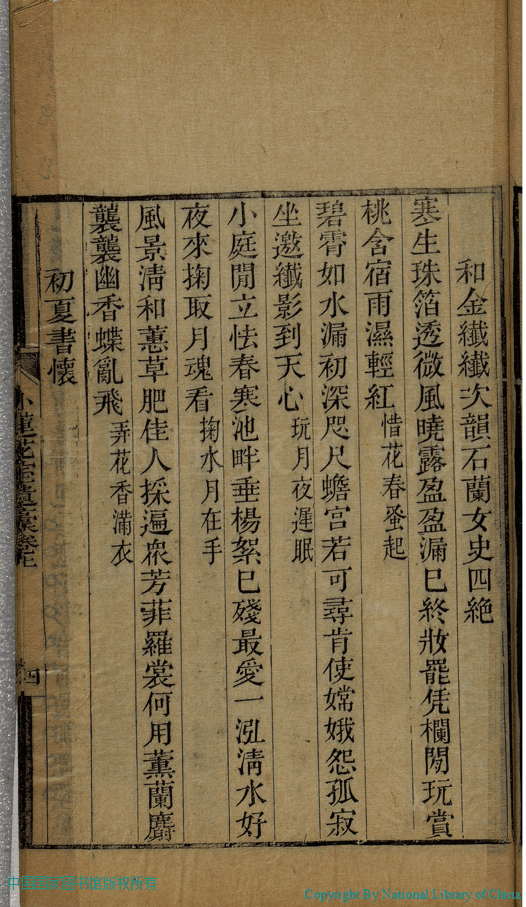 和金纎纎次韻石蘭女史四絶
寒生珠箔透微風曉露盈盈漏已終妝罷凭欄閒玩賞
桃含宿雨濕輕紅惜花春蚤起
碧霄如水漏初深咫尺蟾宮若可尋肯使嫦娥怨孤寂
坐邀纎影到天心玩月夜遲眠
小庭閒立怯春寒池畔垂楊絮已殘最愛一泓淸水好
夜來掬取月魂看掬水月在手
風景淸和蕙草肥佳人採遍衆芳菲羅裳何用薰蘭麝
襲襲幽香蝶亂飛弄花香滿衣
初夏書懷
四
中国国家图书馆版权所有
Copyright By National Library of China